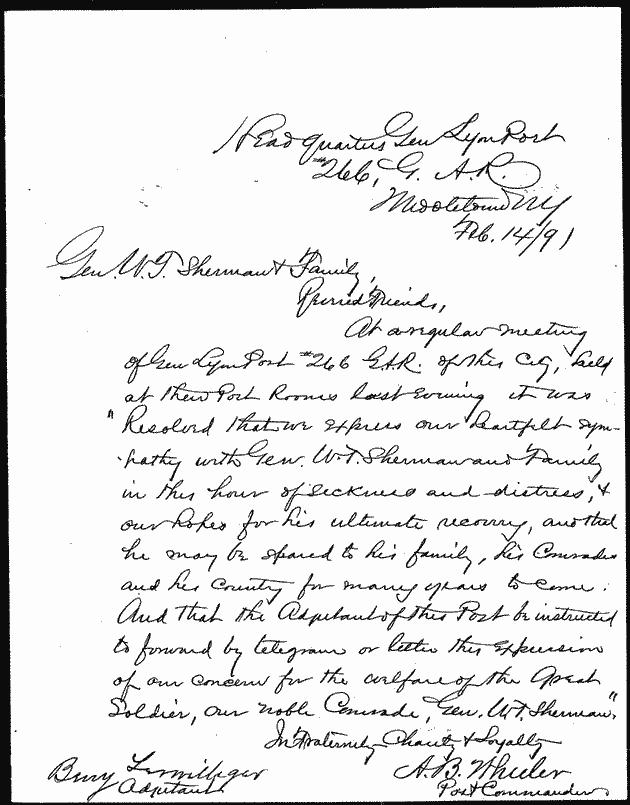 Headquarters Gen Lyon Post
#266, G. A. R.
Middletown NY
Feb. 14/91
Gen. W. T. Sherman & Family,
Friends,
At a regular meeting
of Gen Lyon Post #266 G.A.R. of this City, held
at their Post Rooms last evening it was
"Resolved that we express our heartfelt sym-
pathy with Gen. W. T. Sherman and Family
in this hour of sickness and distress, &
our hopes for his ultimate recovery, and that
he may be spared to his family, his Comrades
and his Country for many years to come.
And that the Adjutant of this Post be instructed
to forward by telegram or letter this expression
of our concern for the welfare of the Great
Soldier, our noble Comrade, Gen. W. T. Sherman"
In Fraternity Charity & Loyalty
A. B. Wheeler
Adjutant
Post Commander